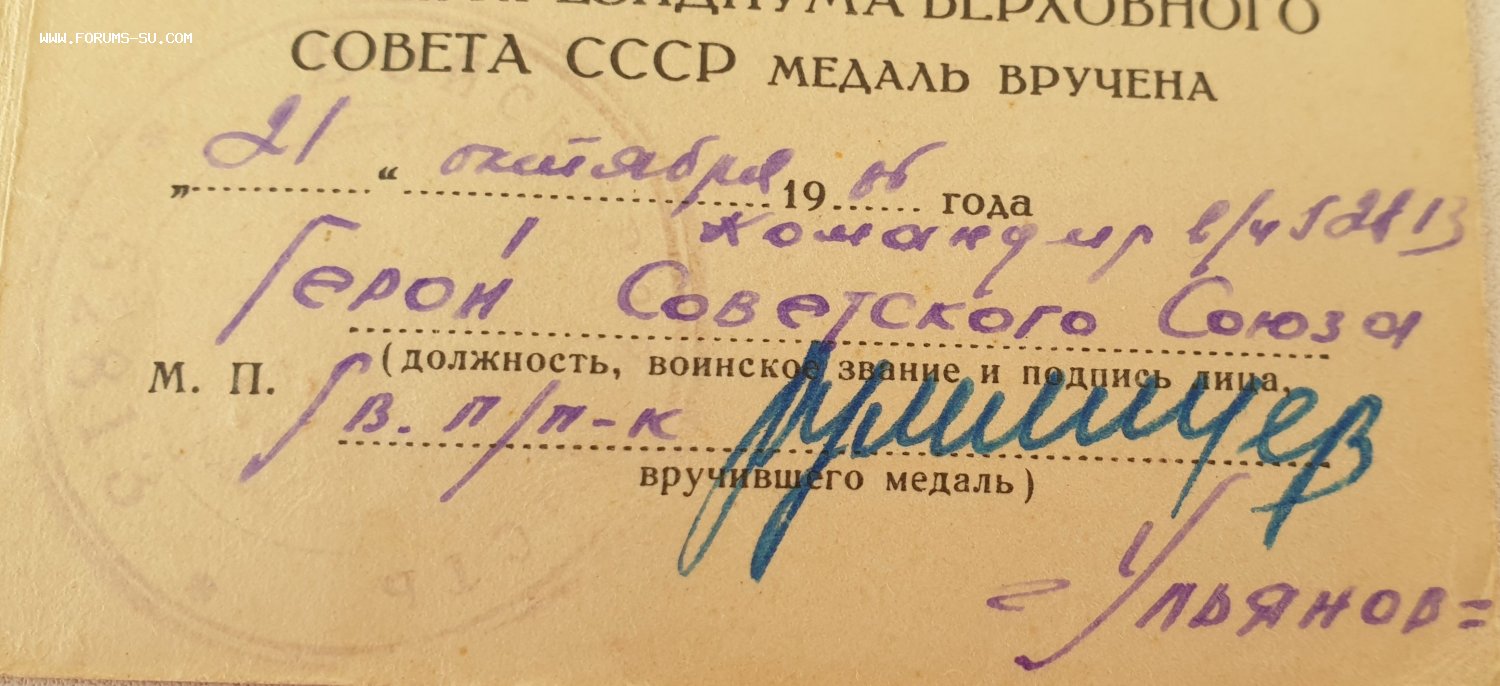 WWW.FORUMS-SU.COM
ПРЕЗИДИУМА ВЕРХОВНОГО
СОВЕТА СССР МЕДАЛЬ ВРУЧЕНА
„21“ октября 1946 года
Командир в/ч
Герой Советского Союза
(должность, воинское звание и подпись лица,
М. П.
Гв. п/п-к
вручившего медаль)
=Ульянов=